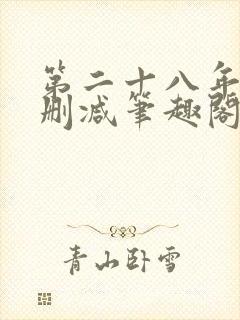 第二十八年
删减笔趣阁
青山卧雪